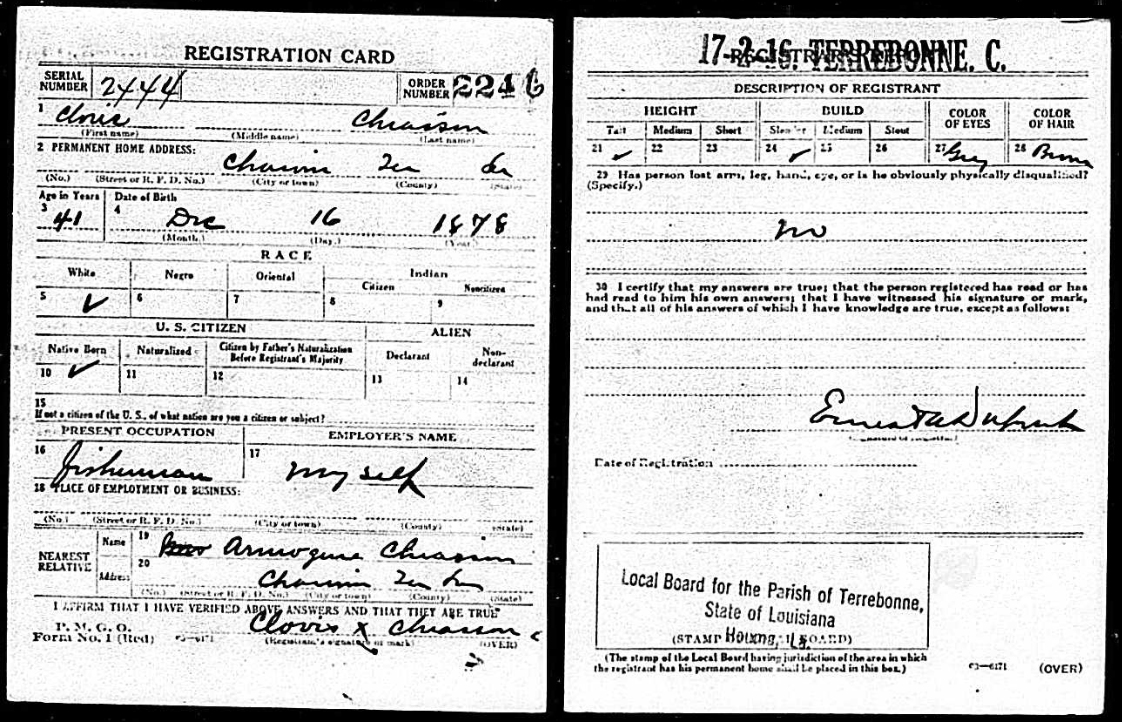 REGISTRATION CARD
SERIAL NUMBER 2444 ORDER NUMBER 2246
1 Clovis Chiasson
(First name) (Middle name) (Last name)
2 PERMANENT HOME ADDRESS: Chauvin Ter La
(No.) (Street or R. F. D. No.) (City or town) (County) (State)
Age in Years Date of Birth
3 41 4 Dec 16 1878
(Month.) (Day.) (Year.)
RACE
White Negro Oriental Indian
Citizen Noncitizen
5 ✓ 6 7 8 9
U. S. CITIZEN ALIEN
Native Born Naturalized Citizen by Father's Naturalization Before Registrant's Majority Declarant Non-declarant
10 ✓ 11 12 13 14
15
If not a citizen of the U. S., of what nation are you a citizen or subject?
PRESENT OCCUPATION EMPLOYER'S NAME
16 fisherman 17 my self
18 PLACE OF EMPLOYMENT OR BUSINESS:
(No.) (Street or R. F. D. No.) (City or town) (County) (State)
NEAREST RELATIVE Name 19 Chiasson
Address 20 Chauvin Ter La
(No.) (Street or R. F. D. No.) (City or town) (County) (State)
I AFFIRM THAT I HAVE VERIFIED ABOVE ANSWERS AND THAT THEY ARE TRUE
P. M. G. O.
Form No. 1 (Red) 03-6171 Clovis x Chiasson
(Registrant's signature or mark) (OVER)
17-2-16. TERREBONNE. C.
REGISTRAR'S REPORT
DESCRIPTION OF REGISTRANT
HEIGHT BUILD COLOR OF EYES COLOR OF HAIR
Tall Medium Short Slender Medium Stout
21 ✓ 22 23 24 ✓ 25 26 27 Grey 28 Brown
29 Has person lost arm, leg, hand, eye, or is he obviously physically disqualified?
(Specify.)
no
30 I certify that my answers are true; that the person registered has read or has
had read to him his own answers; that I have witnessed his signature or mark,
and that all of his answers of which I have knowledge are true, except as follows:
(Signature of Registrar)
Date of Registration
Local Board for the Parish of Terrebonne,
State of Louisiana
(STAMP OF LOCAL BOARD)
Houma, La.
(The stamp of the Local Board having jurisdiction of the area in which
the registrant has his permanent home shall be placed in this box.)
03-6171 (OVER)